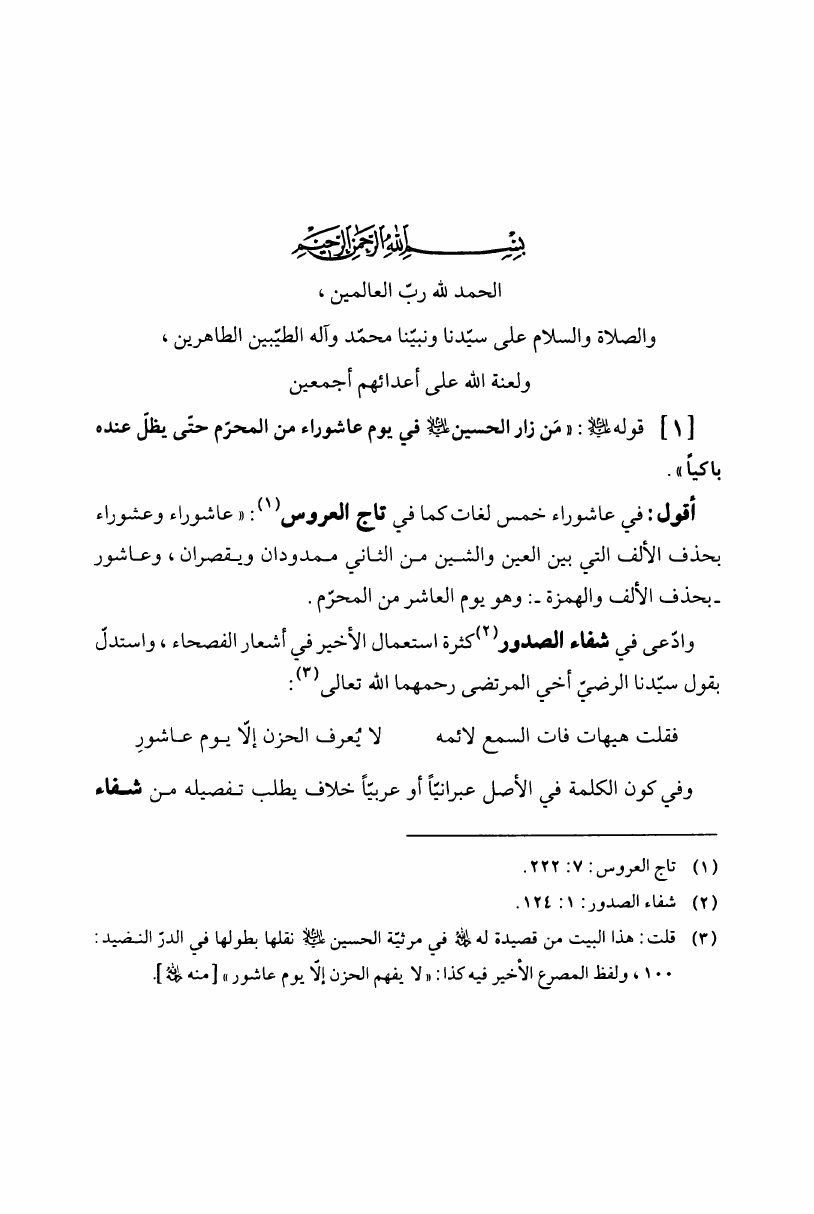 بسم الله الرحمن الرحيم
الحمد لله ربّ العالمين ،
والصلاة والسلام على سيّدنا ونبيّنا محمّد وآله الطيّبين الطاهرين ،
ولعنة الله على أعدائهم أجمعين
[ ١ ] قوله عليه السلام : « مَن زار الحسين عليه السلام في يوم عاشوراء من المحرّم حتّى يظلّ عنده
باكياً » .
أقول : في عاشوراء خمس لغات كما في تاج العروس(١) : « عاشوراء وعشوراء
بحذف الألف التي بين العين والشـين مـن الثـاني مـمدودان ويـقصران ، وعـاشور
ـ بحذف الألف والهمزة ـ : وهو يوم العاشر من المحرّم .
وادّعى في شفاء الصدور(٢) كثرة استعمال الأخير في أشعار الفصحاء ، واستدلّ
بقول سيّدنا الرضيّ أخي المرتضى رحمهما الله تعالى(٣) :
فقلت هيهات فات السمع لائمه لا يُعرف الحزن إلّا يـوم عـاشورِ
وفي كون الكلمة في الأصل عبرانيّاً أو عربيّاً خلاف يطلب تـفصيله مـن شـفاء
(١) تاج العروس : ٧ : ٢٢٢ .
(٢) شفاء الصدور : ١ : ١٢٤ .
(٣) قلت : هذا البيت من قصيدة له في مرثيّة الحسين عليه السلام نقلها بطولها في الدرّ النـضيد :
١٠٠ ، ولفظ المصرع الأخير فيه كذا : « لا يفهم الحزن إلّا يوم عاشور » [ منه ] .